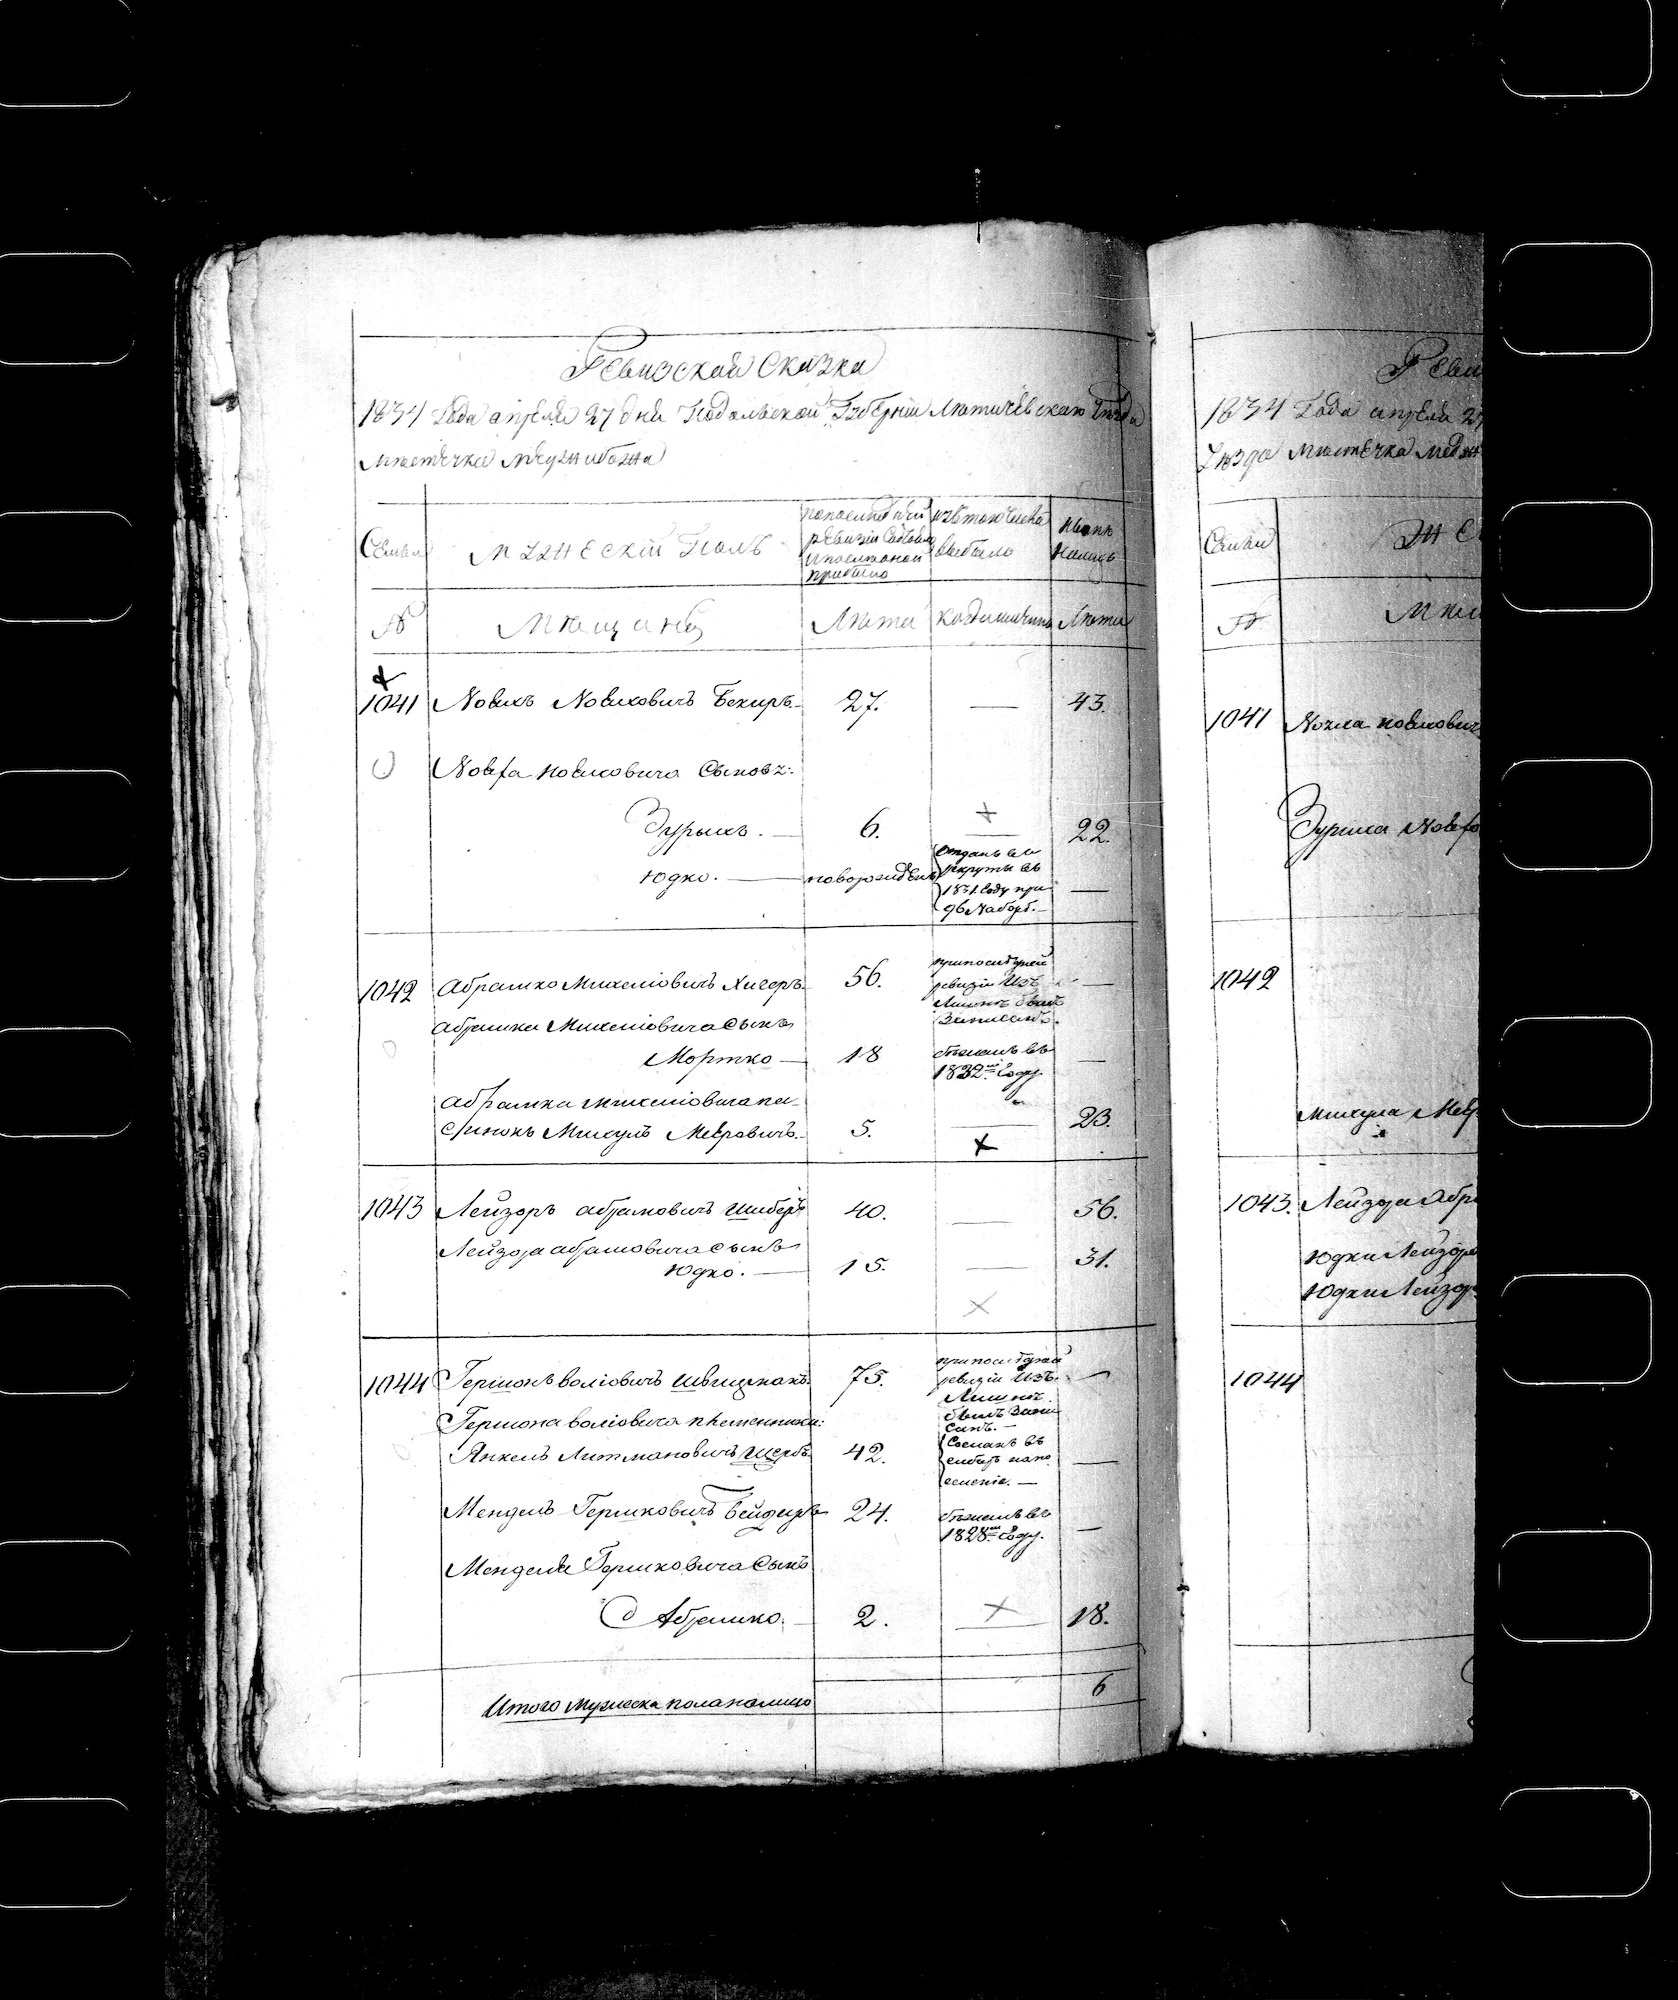 Ревизская Сказка
1834 Года апреля 27 дня Подольской Губерніи Лютичевскаго Уезда
местечка межибожа
Семьи
Мужескій Полъ
по последней ревизіи состояло и после оной прибыло
изъ того числа выбыло
Ныне на лицо
№
Мещане
Лета
когда имянно
Лета
1041 Новхъ Новховичъ Бекиръ. 27. — 43.
сыновъ:
6. 22.
Юдко. — новорожденъ
отданъ въ
рекруты въ
1831. году при
96 Наборе. —
1042 Абрамко Михеліовичъ Хигеръ. 56. —
при последней
ревизіи изъ
лишкъ былъ
записанъ.
Абрамка Михеліовича сынъ
Мортко — 18 —
бежалъ въ
1832мъ году.
Абрамка Михеліовича па-
сынокъ Михуль Меэровичъ. 5. — 23.
1043 Лейзоръ Абрамовичъ Шиберъ 40. — 56.
Лейзора Абрамовича сынъ
Юдко. — 15. — 31.
1044 Гершонъ Воліовичъ 75. —
при последней
ревизіи изъ
лишкъ
былъ запи
санъ. —
Гершона Воліовича племенники:
Янкель Литмановичъ 42. —
Сосланъ въ
сибирь на по
селеніе. —
Мендель Гершковичъ 24. —
бежалъ въ
1828мъ году.
Менделя Гершковича сынъ
Абрамко. — 2. — 18.
Итого мужеска пола налицо 6
Реви
1834 Года апреля 27
уезда местечка меджи
Семьи
Же
№
Мещ
1041 Нохла Новхович
1042
Михуля Меэр
1043. Лейзора Абра
Юдки Лейзора
Юдки Лейзор
1044